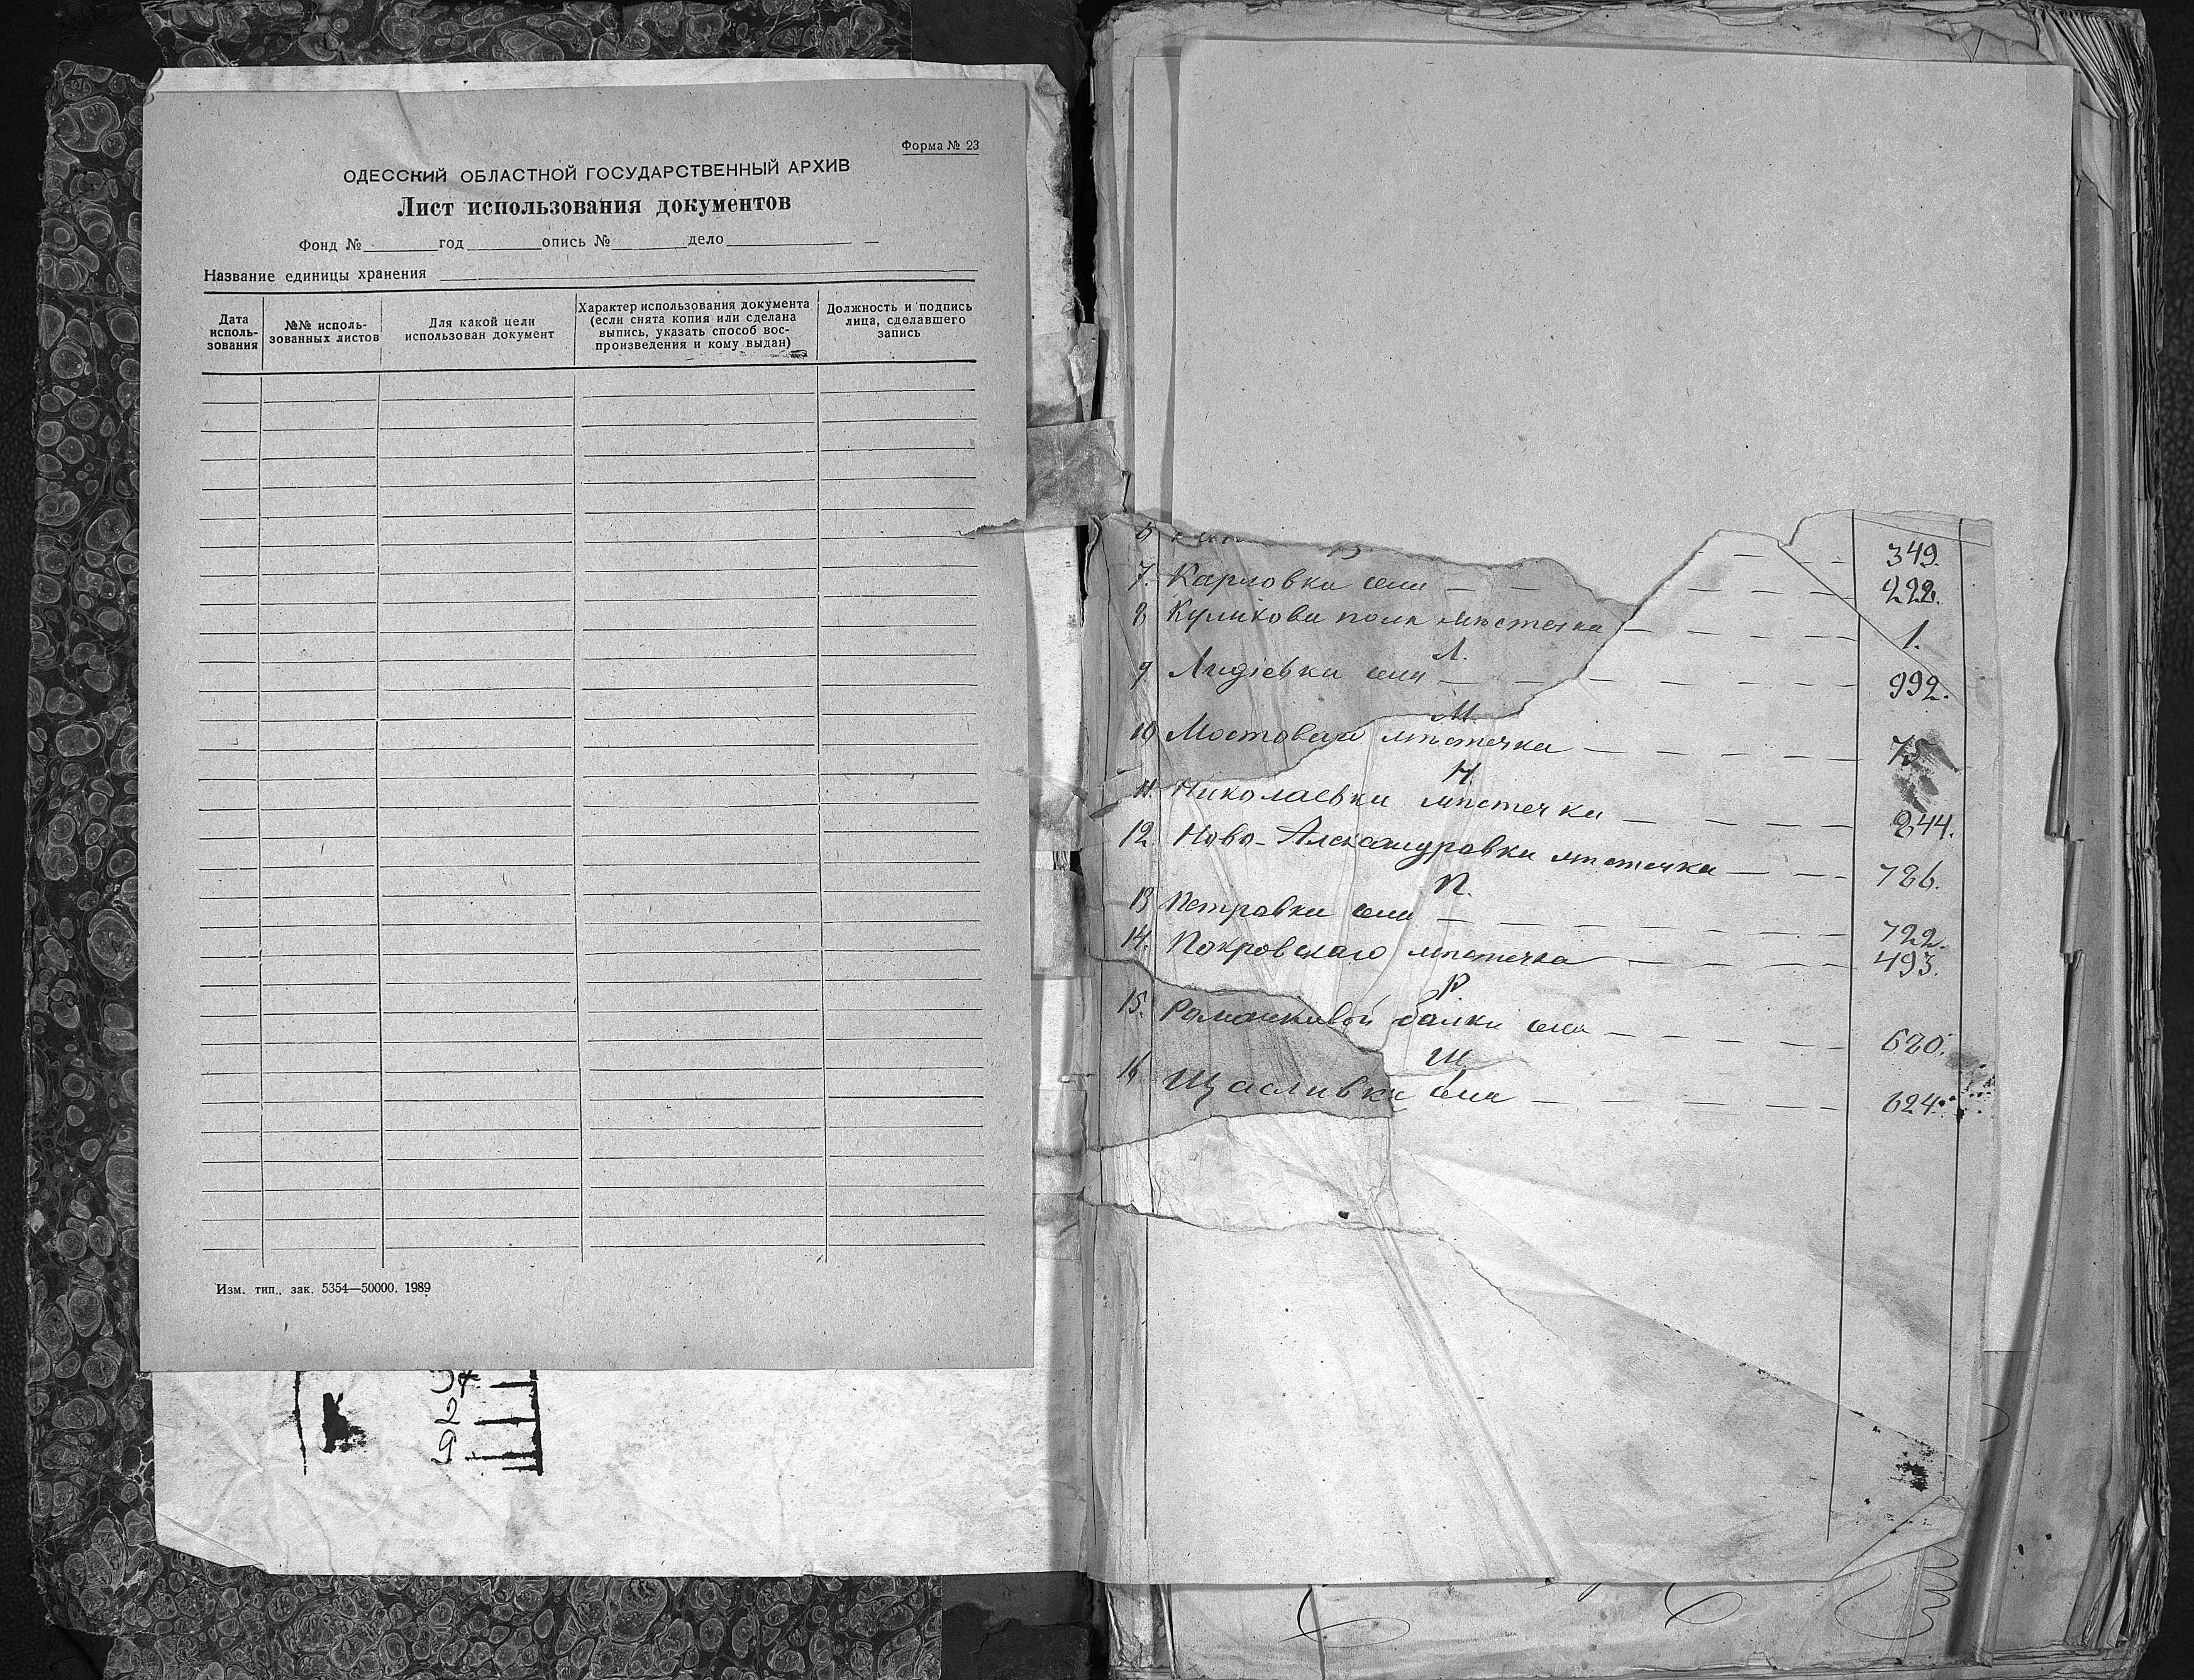 Форма № 23
ОДЕССКИЙ ОБЛАСТНОЙ ГОСУДАРСТВЕННЫЙ АРХИВ
Лист использования документов
Фонд № год опись № дело
Название единицы хранения
Дата исполь-зования
№№ исполь-зованных листов
Для какой цели использован документ
Характер использования документа (если снята копия или сделана выпись, указать способ вос-произведения и кому выдан)
Должность и подпись лица, сделавшего запись
Изм. тип., зак. 5354—50000. 1989
92
349.
7. Карловка села — 222.
8 Куликова поля мѣстечка — 1.
Л.
9 Лидіевки села — 992.
М.
10 Мостоваго мѣстечка — 75
Н.
11. Николаевки мѣстечка — 244.
12. Ново-Александровки мѣстечка — 786.
П.
13 Петровки села — 722.
14. Покровскаго мѣстечка — 493.
Р.
15. Романковой балки села — 680.
Щ.
16 Щасливки села — 624.